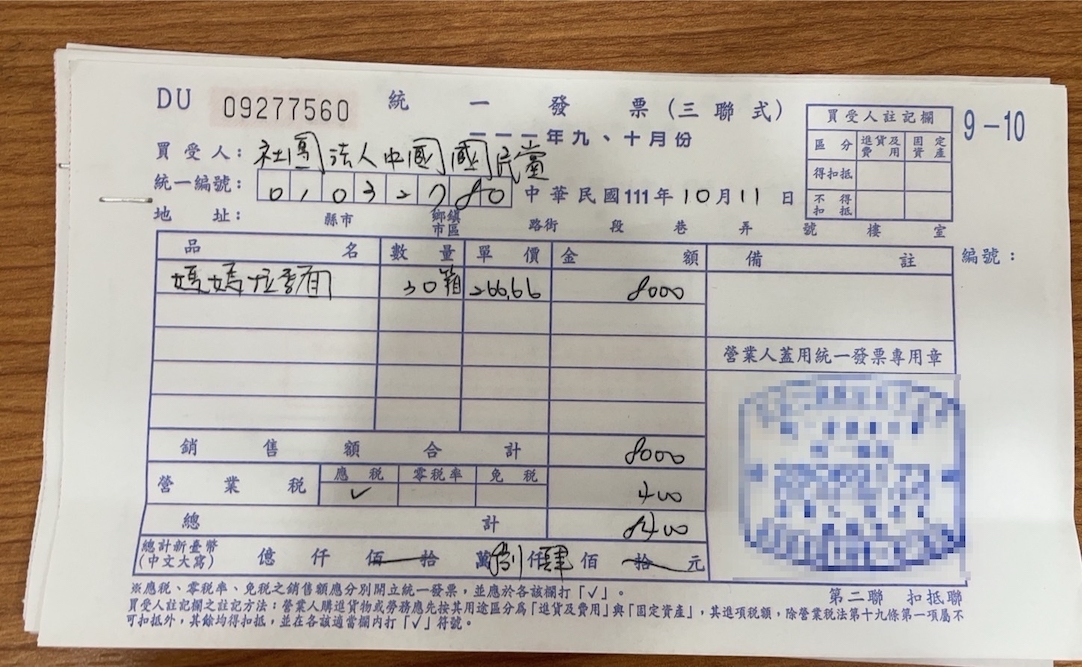 DU 09277560 統一發票(三聯式)
一一一年九、十月份
9-10
買受人註記欄
區分 進貨及費用 固定資產
得扣抵
不得扣抵
買受人: 社團法人中國國民黨
統一編號: 01032780 中華民國111年10月11日
地址: 縣市 鄉鎮市區 路街 段 巷 弄 號 樓 室
品名 數量 單價 金額 備註 編號:
媽媽拉麵 30箱 266.66 8000
營業人蓋用統一發票專用章
銷售額合計 8000
營業稅 應稅 零稅率 免稅 400
✓
總計 8400
總計新臺幣(中文大寫) 億 仟 佰 拾 萬 捌仟肆佰 拾 元
※應稅、零稅率、免稅之銷售額應分別開立統一發票,並應於各該欄打「✓」。
第二聯 扣抵聯
買受人註記欄之註記方法:營業人購進貨物或勞務應先按其用途區分為「進貨及費用」與「固定資產」,其進項稅額,除營業稅法第十九條第一項屬不
可扣抵外,其餘均得扣抵,並在各該適當欄內打「✓」符號。